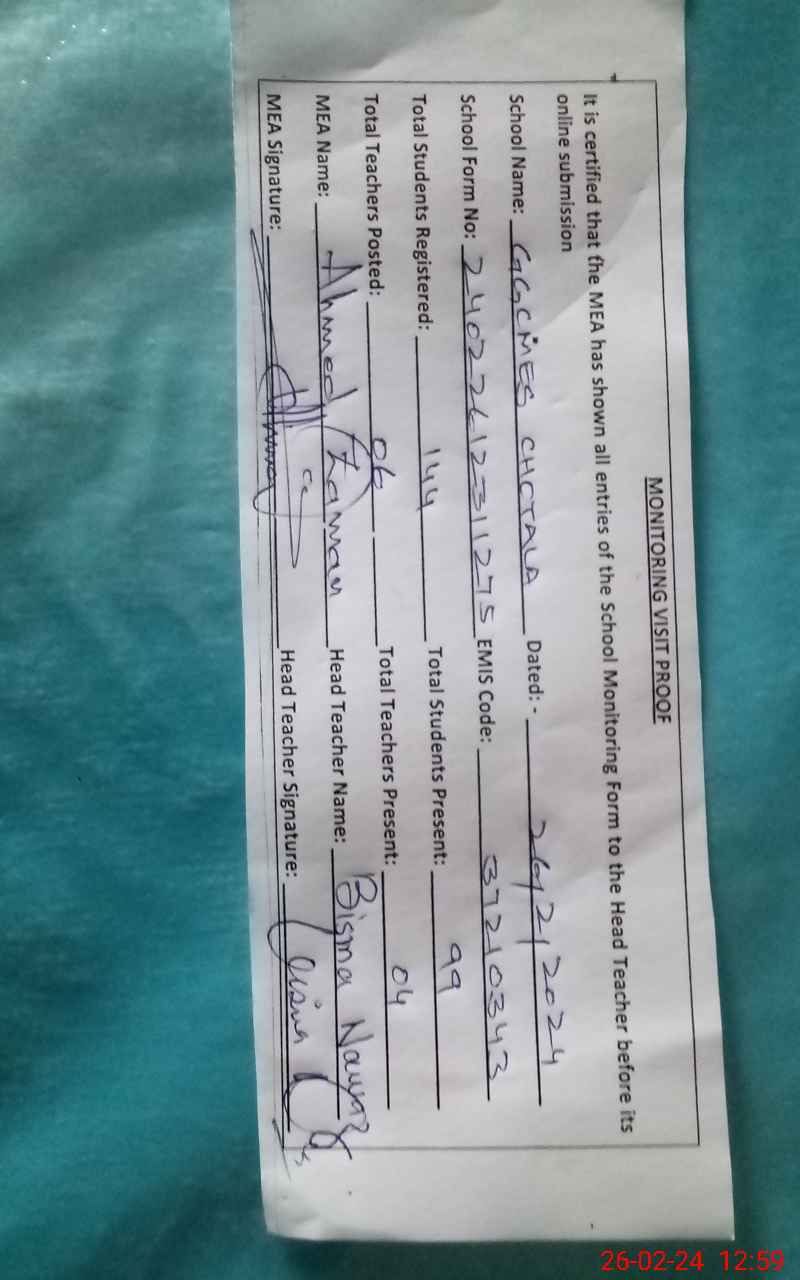 MONITORING VISIT PROOF
It is certified that the MEA has shown all entries of the School Monitoring Form to the Head Teacher before its
online submission
School Name: GGCMES CHOTALA Dated: - 26/2/2024
School Form No: 24022612311275 EMIS Code: 37210343
Total Students Registered: 144 Total Students Present: 99
Total Teachers Posted: 06 Total Teachers Present: 04
MEA Name: Ahmed Zaman Head Teacher Name: Bisma Nawaz
MEA Signature: Head Teacher Signature:
26-02-24 12:59